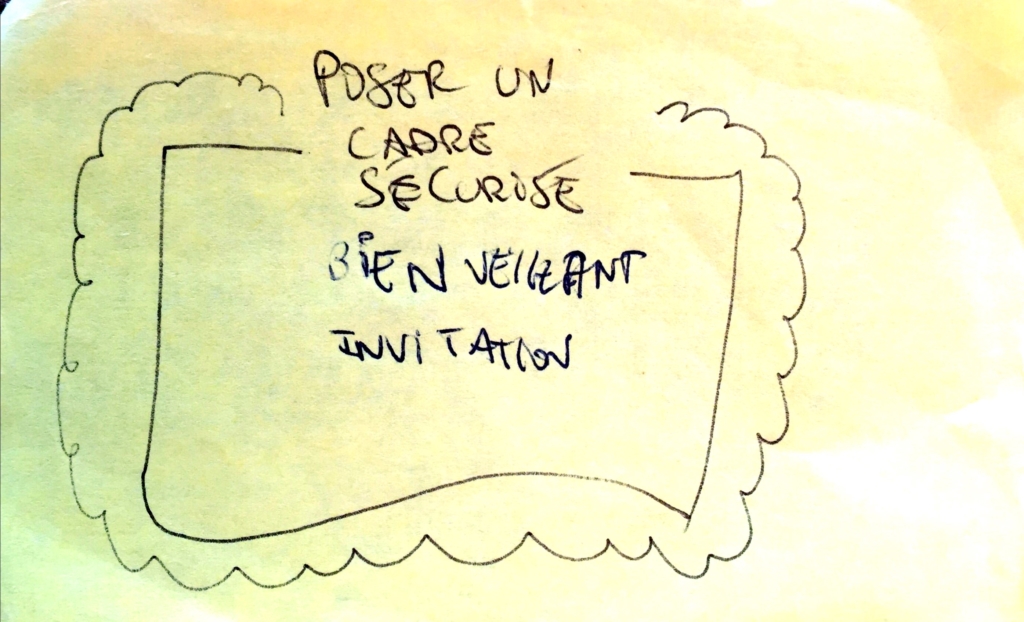 POSER UN
CADRE
SÉCURISÉ
BIENVEILLANT
INVITATION